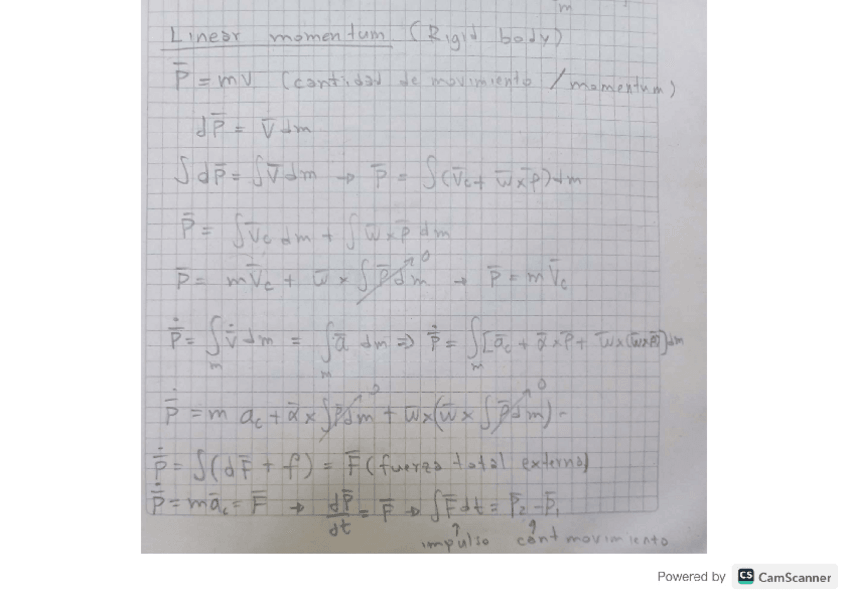 Linear momentum (Rigid body)
P̄ = mV (cantidad de movimiento / momentum)
dP̄ = V̄ dm
∫dP̄ = ∫V̄ dm → P̄ = ∫(V̄c + w̄ x ρ̄) dm
P̄ = ∫V̄c dm + ∫w̄ x ρ̄ dm
P̄ = mV̄c + w̄ x ∫ρ̄ dm 0 → P̄ = m V̄c
Ṗ̄ = ∫m v̄̇ dm = ∫m ā dm ⇒ Ṗ̄ = ∫m [āc + ᾱ x ρ̄ + w̄ x (w̄ x ρ̄)] dm
Ṗ̄ = m ac + ᾱ x ∫ρ̄ dm 0 + w̄ x (w̄ x ∫ρ̄ dm) 0
Ṗ̄ = ∫(dF̄ + f) = F̄ (fuerza total externa)
Ṗ̄ = māc = F̄ → dP̄/dt = F̄ → ∫F̄ dt = P̄2 - P̄1
↑ ↑
impulso cant movimiento
Powered by CS CamScanner